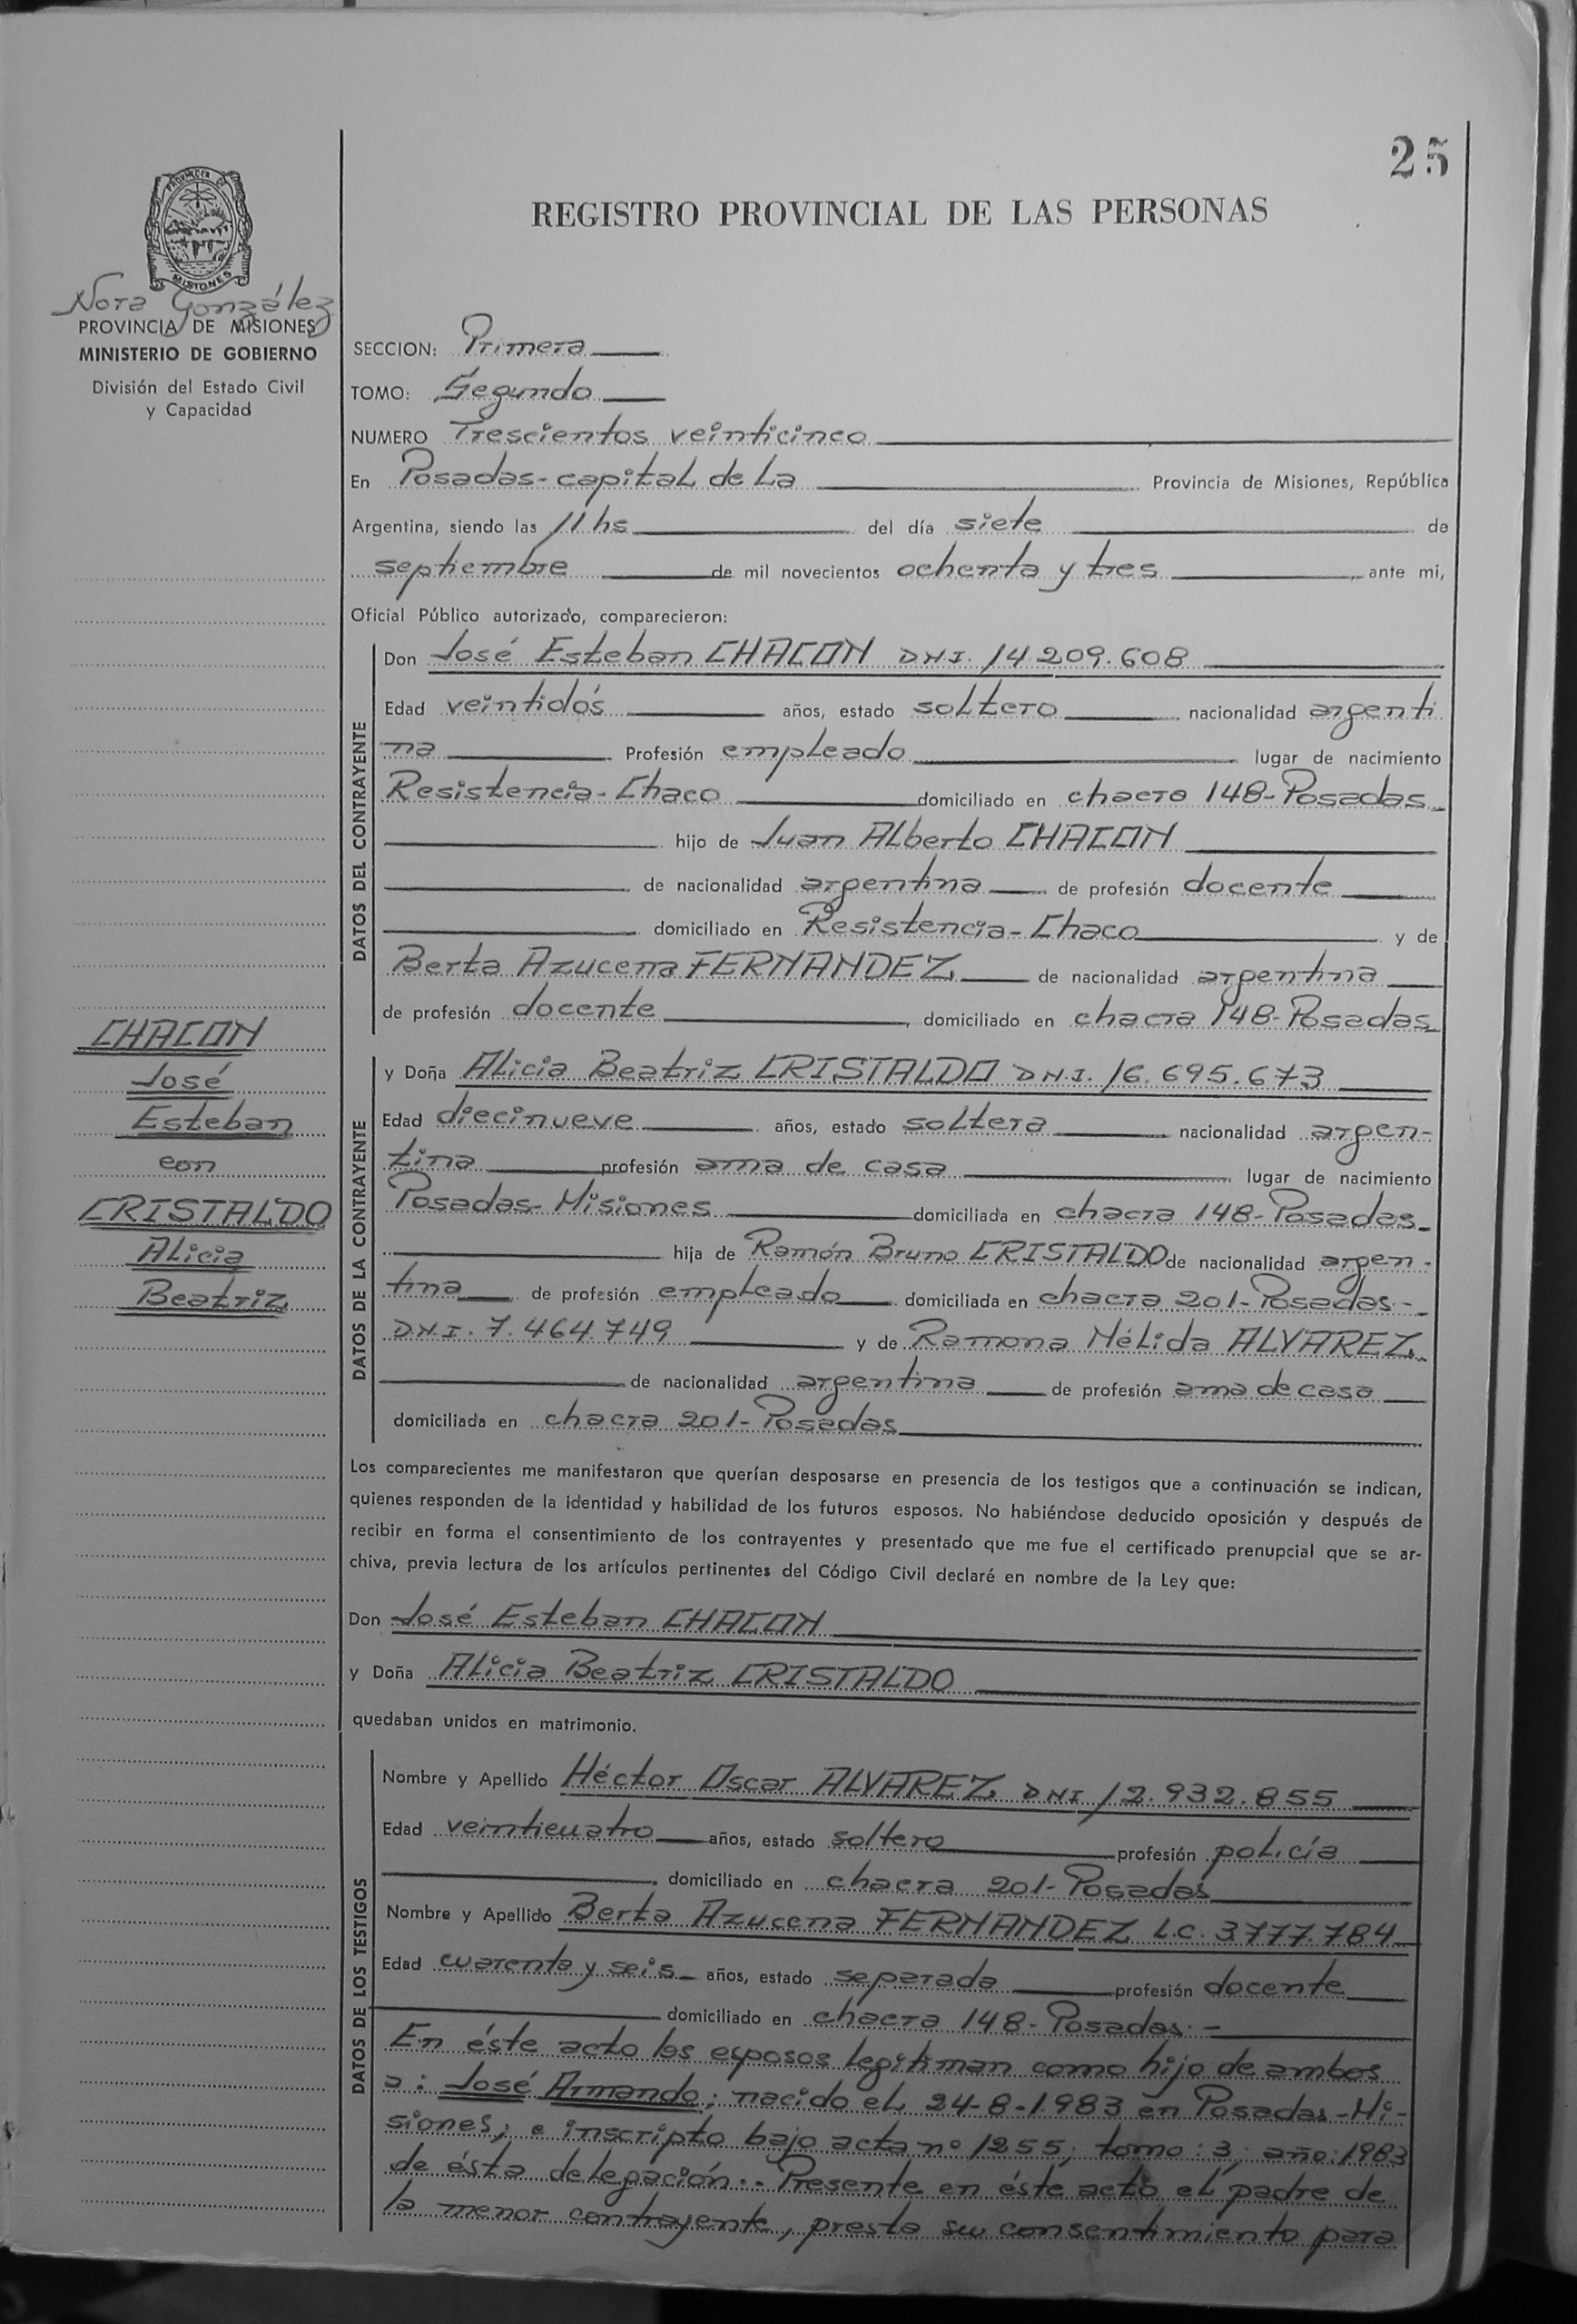 25
REGISTRO PROVINCIAL DE LAS PERSONAS
PROVINCIA DE
MISIONES
Nora González
PROVINCIA DE MISIONES
MINISTERIO DE GOBIERNO
División del Estado Civil
y Capacidad
SECCION: Primera
TOMO: Segundo
NUMERO Trescientos veinticinco
En Posadas-capital de la Provincia de Misiones, República
Argentina, siendo las 11 hs del día siete de
septiembre de mil novecientos ochenta y tres ante mi,
Oficial Público autorizado, comparecieron:
DATOS DEL CONTRAYENTE
Don José Esteban CHACON DNI. 14.209.608
Edad veintidós años, estado soltero nacionalidad argenti
na Profesión empleado lugar de nacimiento
Resistencia-Chaco domiciliado en chacra 148-Posadas
hijo de Juan Alberto CHACON
de nacionalidad argentina de profesión docente
domiciliado en Resistencia-Chaco y de
Berta Azucena FERNANDEZ de nacionalidad argentina
de profesión docente, domiciliado en chacra 148-Posadas
CHACON
José
Esteban
con
CRISTALDO
Alicia
Beatriz
DATOS DE LA CONTRAYENTE
y Doña Alicia Beatriz CRISTALDO DNI. 16.695.673
Edad diecinueve años, estado soltera nacionalidad argen-
tina profesión ama de casa lugar de nacimiento
Posadas-Misiones domiciliada en chacra 148-Posadas
hija de Ramón Bruno CRISTALDO de nacionalidad argen-
tina de profesión empleado domiciliada en chacra 201-Posadas-
DNI. 7.464.749 y de Ramona Nélida ALVAREZ
de nacionalidad argentina de profesión ama de casa
domiciliada en chacra 201-Posadas
Los comparecientes me manifestaron que querían desposarse en presencia de los testigos que a continuación se indican,
quienes responden de la identidad y habilidad de los futuros esposos. No habiéndose deducido oposición y después de
recibir en forma el consentimiento de los contrayentes y presentado que me fue el certificado prenupcial que se ar-
chiva, previa lectura de los artículos pertinentes del Código Civil declaré en nombre de la Ley que:
Don José Esteban CHACON
y Doña Alicia Beatriz CRISTALDO
quedaban unidos en matrimonio.
DATOS DE LOS TESTIGOS
Nombre y Apellido Héctor Oscar ALVAREZ DNI 12.932.855
Edad veinticuatro años, estado soltero profesión policía
domiciliado en chacra 201-Posadas
Nombre y Apellido Berta Azucena FERNANDEZ L.C. 3.777.784
Edad cuarenta y seis años, estado separada profesión docente
domiciliado en chacra 148-Posadas.-
En éste acto los esposos legitiman como hijo de ambos
a: José Armando; nacido el 24-8-1.983 en Posadas-Mi-
siones; e inscripto bajo acta nº 1255; tomo: 3; año: 1983
de ésta delegación.- Presente en éste acto el padre de
la menor contrayente, presta su consentimiento para